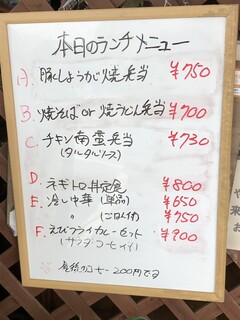 本日のランチメニュー
A. 豚しょうが焼弁当 ¥750
B. 焼そば or 焼うどん弁当 ¥700
C. チキン南蛮弁当 ¥730
(タルタルソース)
D. ネギトロ丼定食 ¥800
E. 冷し中華 (単品) ¥650
〃 (ごはん付) ¥750
F. えびフライカレーセット ¥900
(サラダ・コーヒー付)
食後のコーヒー200円です